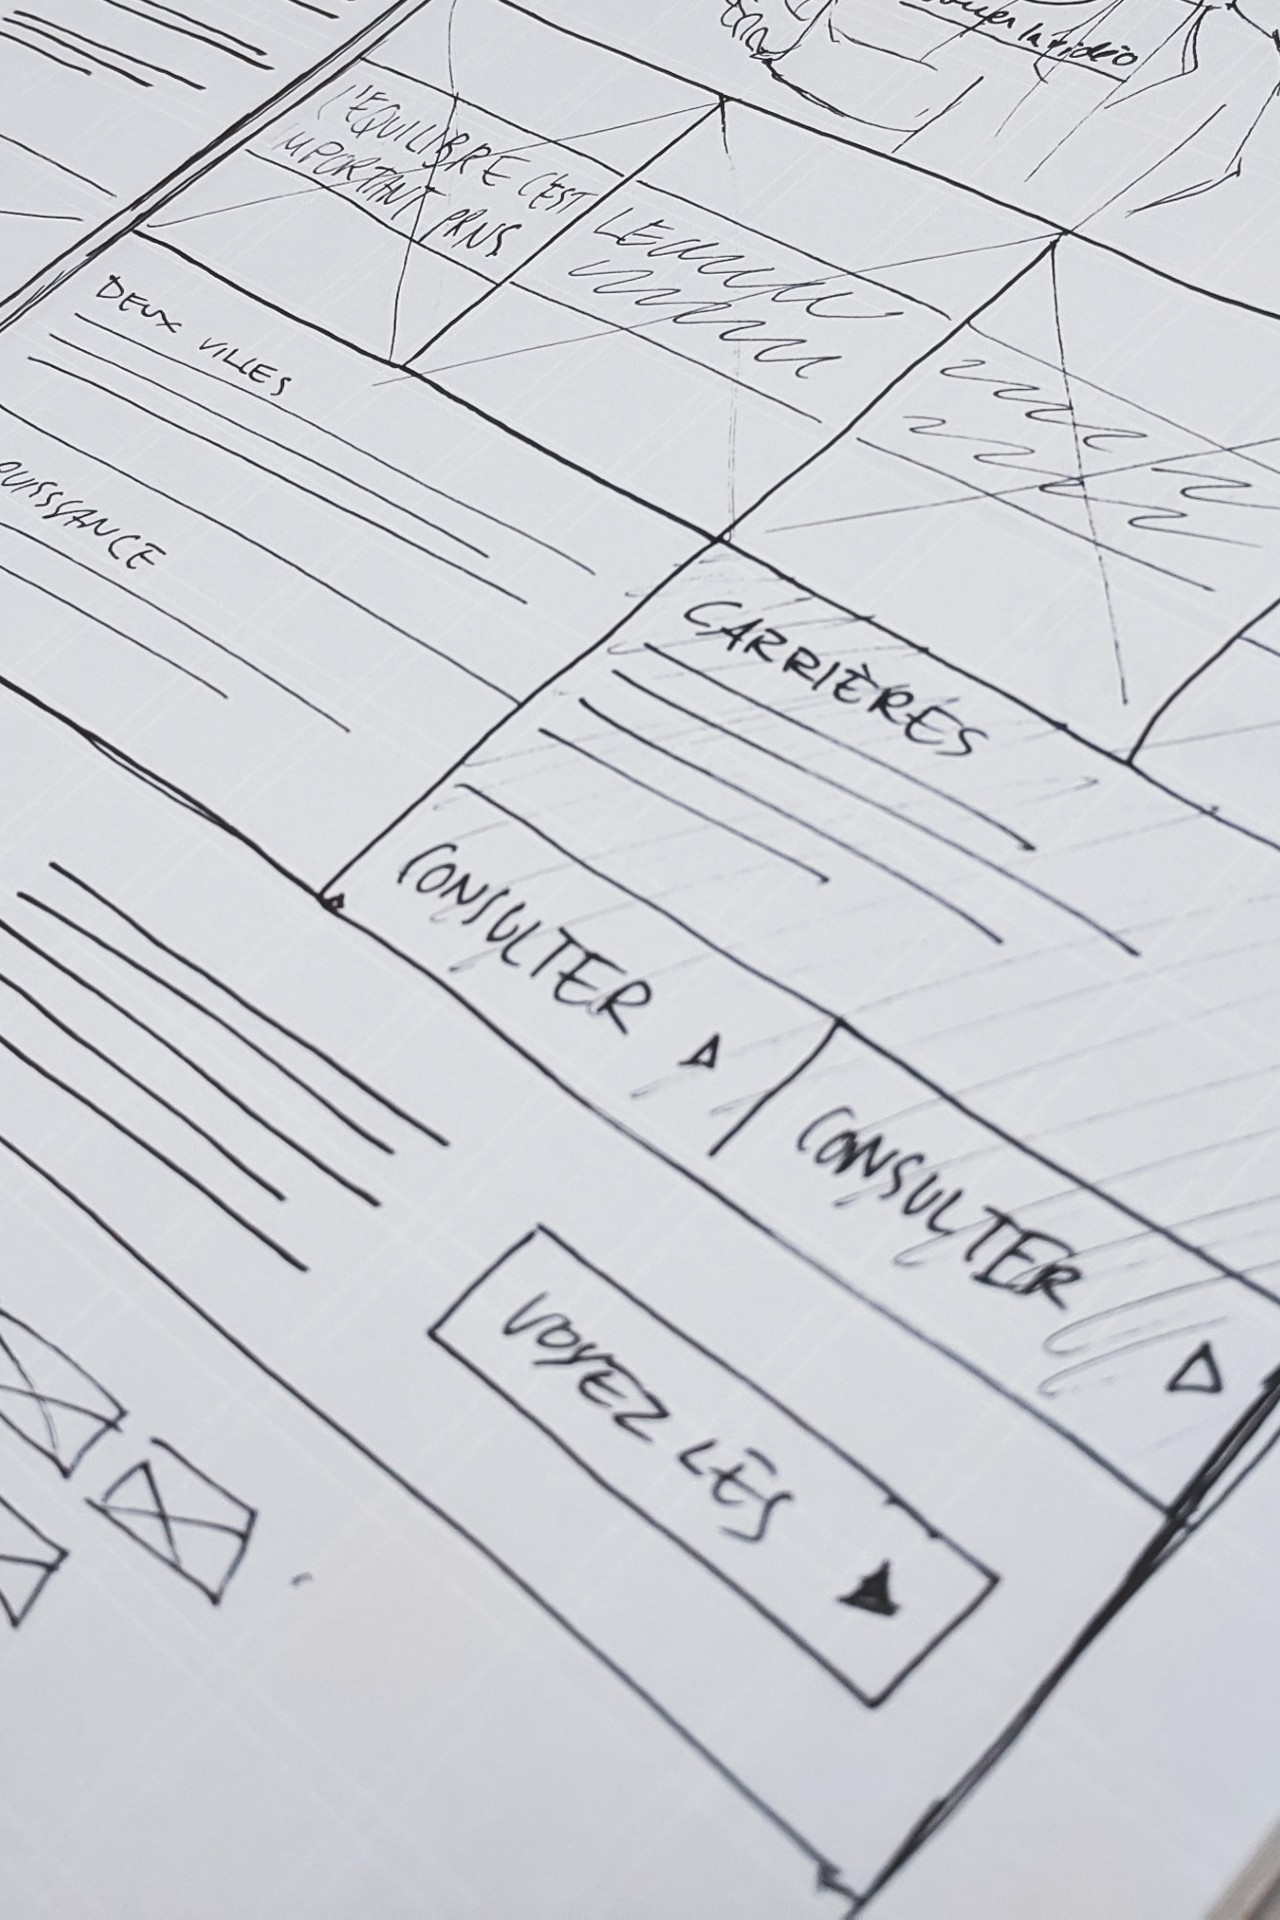 la vidéo
L'ÉQUILIBRE C'EST
IMPORTANT PRNS
LE
DEUX VILLES
PUISSANCE
CARRIÈRES
CONSULTER
CONSULTER
VOYEZ LES